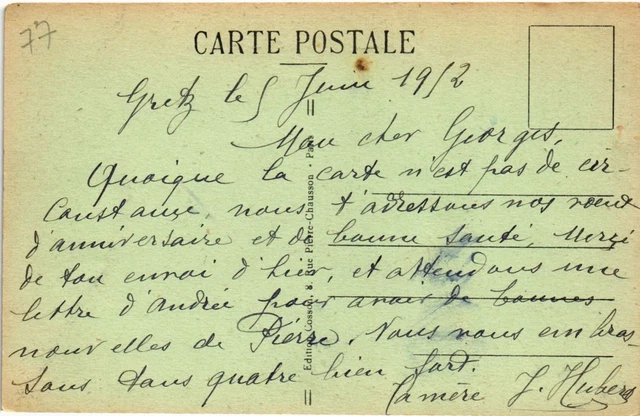 77
CARTE POSTALE
Gretz le 5 Juin 1952
Mon cher Georges,
Quoique la carte n'est pas de cir-
constance, nous t'adressons nos voeux
d'anniversaire et de bonne santé, Merci
de ton envoi d'hier, et attendons une
lettre d'Andrée pour avoir de bonnes
nouvelles de Pierre. Nous vous embras-
sons tous quatre bien fort.
Ta mère J. Hubera
Edition Cosson, 8, Rue Pierre-Chausson - Paris